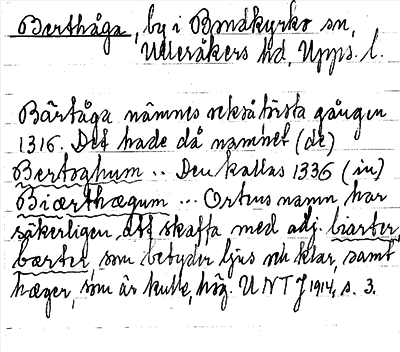 Berthåga, by i Bondkyrko sn,
Ulleråkers hd, Upps. l.
Bärtåga nämnes också första gången
1316. Det hade då namnet (de)
Bertoghum .. Den kallas 1336 (in)
Biærthægum ... Ortens namn har
säkerligen att skaffa med adj. biarter,
bærter, som betyder ljus och klar, samt
hæger, som är kulle, hög. UNT J 1914, s. 3.